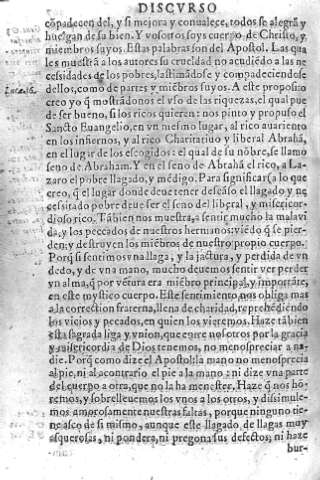 DISCVRSO
cõpadecen del, y si mejora y conualece, todos se alegrã y
huelgan de su bien. Y vosotros soys cuerpo de Christo, y
miembros suyos. Estas palabras son del Apostol. Las qua
les muestrã a los autores su crueldad no acudiẽdo a las ne
cessidades de los pobres, lastimãdose y compadeciendose
dellos, como de partes y miẽbros suyos. A este proposito
creo yo q̃ mostrãdonos el vso de las riquezas, el qual pue
de ser bueno, si los ricos quieren: nos pinto y propuso el
Sancto Euangelio, en vn mesmo lugar, al rico auariento
en los infiernos, y al rico Charitatiuo y liberal Abrahã,
en el lugar de los escogidos: el qual de su nõbre, se llamo
seno de Abraham. Y en el seno de Abrahã el rico, a La-
zaro el pobre llagado, y mẽdigo. Para significarsa lo que
creo, q̃ el lugar donde deue tener descãso el llagado y ne
cessitado pobre deue ser el seno del liberal, y misericor-
dioso rico. Tãbien nos muestra, a sentir mucho la mala vi
da, y los peccados de nuestros hermanos: viẽdo q̃ se pier-
den: y destruyen los miẽbros de nuestro propio cuerpo.
Porq̃ si sentimos vna llaga, y la jactura, y perdida de vn
dedo, y de vna mano, mucho deuemos sentir ver perder
vn alma, q̃ por vẽtura era miẽbro principal, y importãte,
en este mystico cuerpo. Este sentimiento nos obliga mas
a la correction fraterna, llena de charidad, reprehẽdiendo
los vicios y pecados, en quien los vieremos. Haze tãbien
esta sagrada liga y vnion, que entre nosotros por la gracia
y misericordia de Dios tenemos, no menospreciar a na-
die. Porq̃ como dize el Apostol: la mano no menosprecia
al pie, ni al contrario el pie a la mano: ni dize vna parte
del cuerpo a otra, que no la ha menester. Haze q̃ nos hõ-
remos, y sobrelleuemos los vnos a los otros, y dissimule-
mos amorosamente nuestras faltas, porque ninguno tie-
ne asco de si mismo, aunque este llagado de llagas muy
asquerosas, ni pondera, ni pregona sus defectos; ni haze
bur-